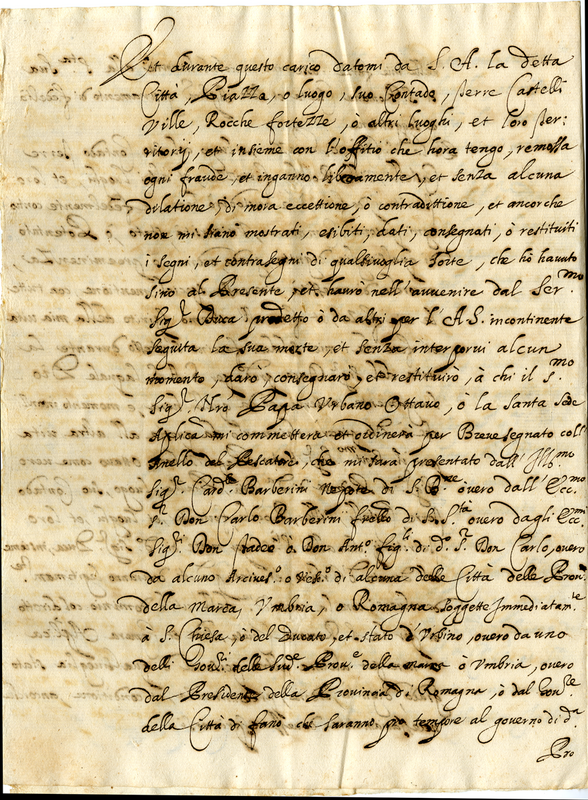 Et durante questo carico datomi da S. A. la detta
Citta, Piazza, o luogo, suo Contado, Terre Castelli
Ville, Rocche fortezze, ò altri luoghi, et loro Ter:
ritorij, et insieme con l'offitio che hora tengo, remossa
ogni fraude, et inganno liberamente, et senza alcuna
dilatione, di mora eccettione, ò contradittione, et ancorche
non mi siano mostrati, esibiti, dati, consegnati, ò restituiti
i segni, et contrasegni di qualsivoglia sorte, che hò havuto
sino al Presente, et havrò nell'avvenire dal Ser.mo
Sig.r Duca predetto ò da altri per l'A.S. incontinente
seguita la sua morte, et senza interporvi alcun
momento, darò, consegnarò, et restituirò, à chi il S.mo
Sig.r Nro Papa Urbano Ottavo, ò la Santa Sede
Aplica mi commetterà et ordinerà per Breve segnato coll'
Anello del Pescatore, che mi sarà presentato dall'Ill.mo
Sig.r Card.le Barberini Nepote di S. B.ne overo dall'Ecc.mo
S.r Don Carlo Barberini fratello di S. S.tà overo dagli Ecc.mi
Sig.ri Don Tadeo o Don Ant.o figli di d.o S.r Don Carlo, overo
da alcuno Arcives.o o Vesc.o di alcuna delle Citta delle Prov.e
della Marca, Umbria, o Romagna soggette Immediatam.te
à S. Chiesa, ò del Ducato, et stato d'Urbino, overo da uno
delli Gov.ri delle sud.e Prov.e della Marca ò Umbria, overo
dal Presidente della Provincia di Romagna, ò dal Gov.re
della Citta di fano che saranno pro tempore al governo di d.a
Pro